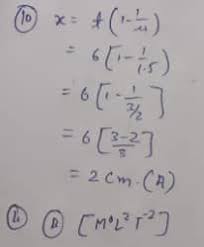 (10) x = t (1 - 1/μ)
= 6 [1 - 1/1.5]
= 6 [1 - 1/3/2]
= 6 [3-2/3]
= 2 cm. (A)
[M⁰L²T⁻²]